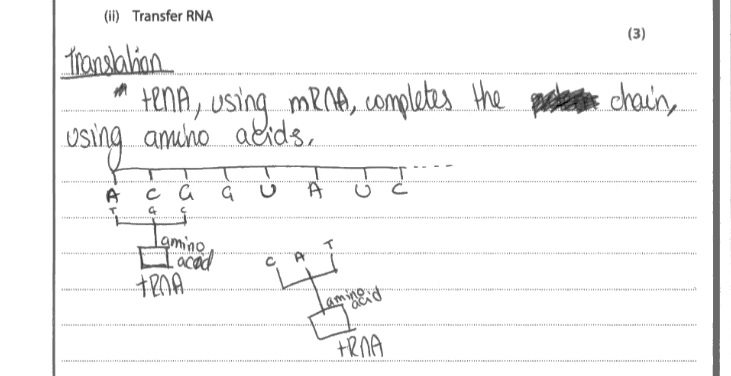 (ii) Transfer RNA
(3)
Translation
tRNA, using mRNA, completes the chain,
using amino acids.
A C G G U A U C
T G C
amino
acod
tRNA
C A T
amino
acid
tRNA